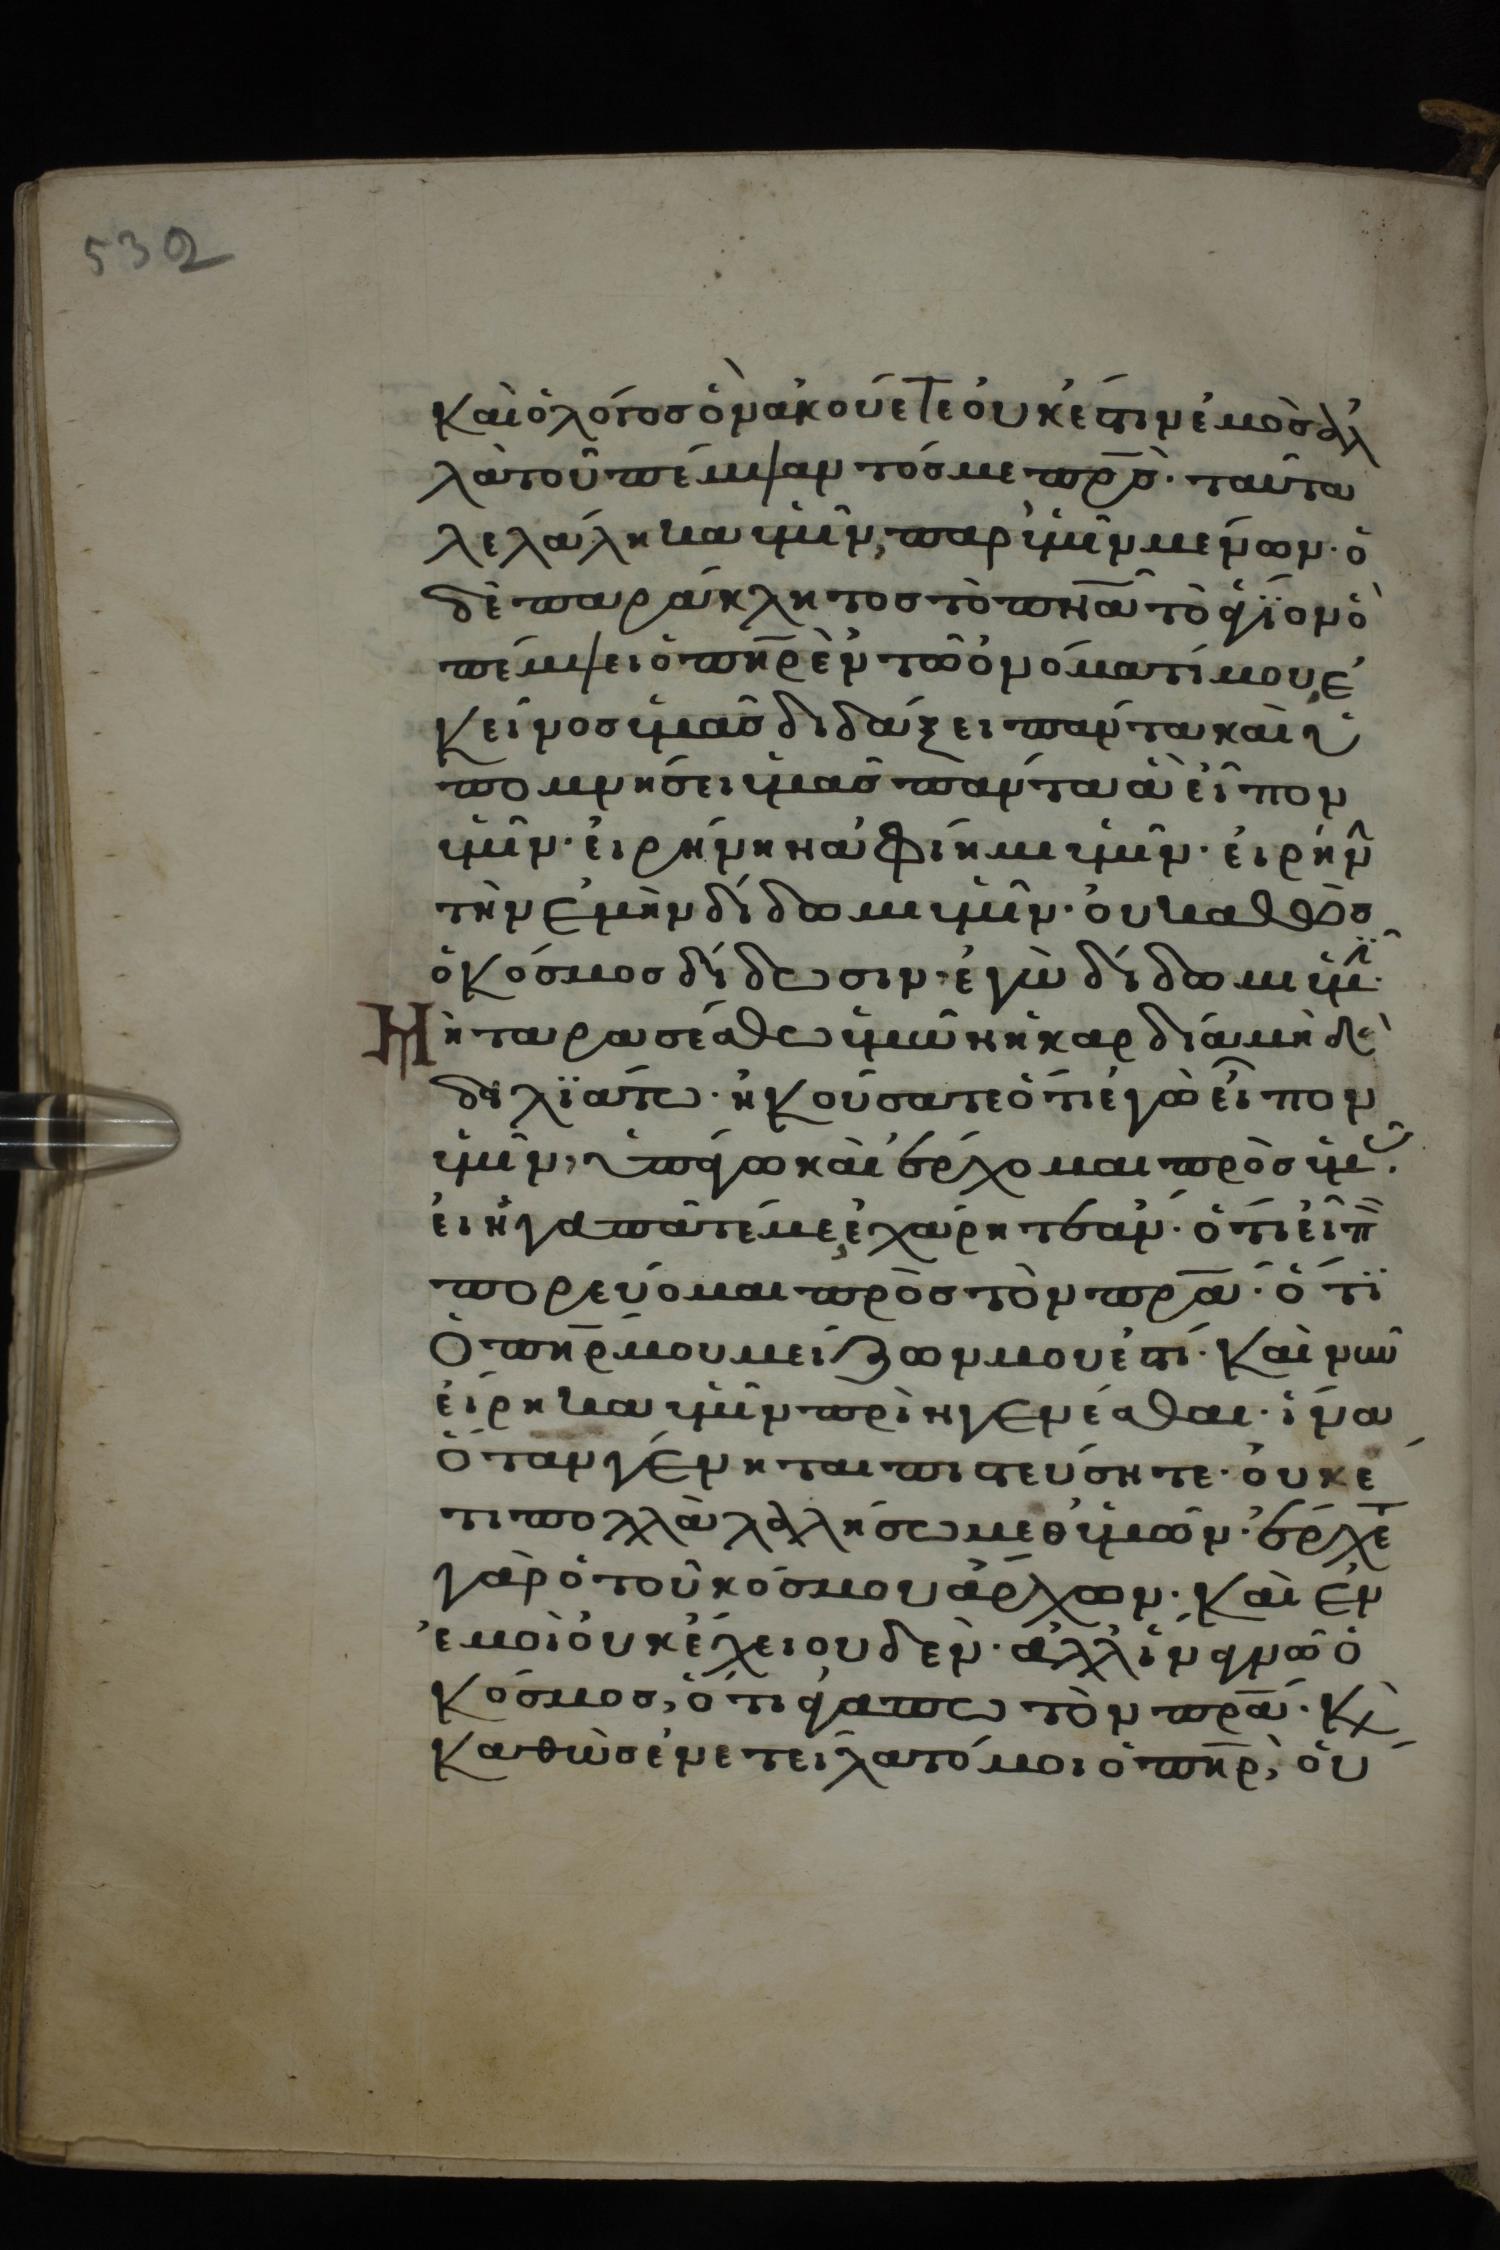 532
καὶ ὁ λόγος ὃν ἀκούετε οὐκ ἔστιν ἐμὸς ἀλ
λὰ τοῦ πέμψαντός με πρ̅ς̅· ταῦτα
λελάληκα ὑμῖν, παρ ὑμῖν μένων· ὁ
δὲ παράκλητος τὸ πν̅α̅ τὸ ἅγϊον ὃ
πέμψει ὁ πη̅ρ̅ ἐν τῶ ὀνόματί μου, ἐ
κεῖνος ὑμᾶς διδάξει πάντα καὶ ὑ
πομνήσει ὑμᾶς πάντα ἃ εἶπον
ὑμῖν· εἰρήνην ἀφίημι ὑμῖν· εἰρήν
τὴν ἐμὴν δίδωμι ὑμῖν· οὐ καθὼς
ὁ κόσμος δίδωσιν, ἐγὼ δίδωμι ὑμῖ·
Μὴ ταρασέσθω ὑμῶν ἡ καρδία μὴ δὲ
δειλϊάτω· ἠκούσατε ὅτι ἐγὼ εἶπον
ὑμῖν, ὑπάγω καὶ ἔρχομαι πρὸς ὑμ·
εἰ ἠγαπᾶτέ με, ἐχάρητε ἄν· ὅτι εἶπ
πορεύομαι πρὸς τὸν πρ̅α̅· ὅτϊ
ὁ πη̅ρ̅ μου μείζων μου ἐστί· καὶ νῦν
εἴρηκα ὑμῖν πρὶν γενέσθαι· ἵνα
ὅταν γένηται πιστεύσητε· οὐκέ
τι πολλὰ λαλήσω μεθ ὑμῶν· ἔρχε
γὰρ ὁ τοῦ κόσμου ἄρχων· καὶ ἐν
ἐμοὶ οὐκ ἔχει οὐδέν· ἀλλ ἵνα γνῶ ὁ
κόσμος, ὅτι ἀγαπῶ τὸν πρ̅α̅· κ̀
καθὼς ἐνετείλατό μοι ὁ πη̅ρ̅, οὕ